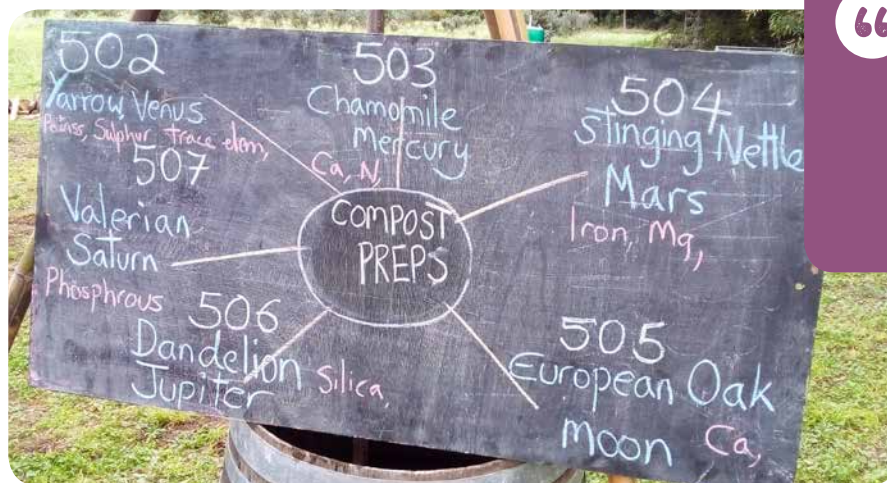 502
Yarrow, Venus
Potass, Sulphur trace elem,
503
Chamomile
Mercury
Ca, N,
504
Stinging Nettle
Mars
Iron, Mg,
507
Valerian
Saturn
Phosphrous
COMPOST
PREPS
506
Dandelion
Jupiter
Silica,
505
European Oak
Moon
Ca,